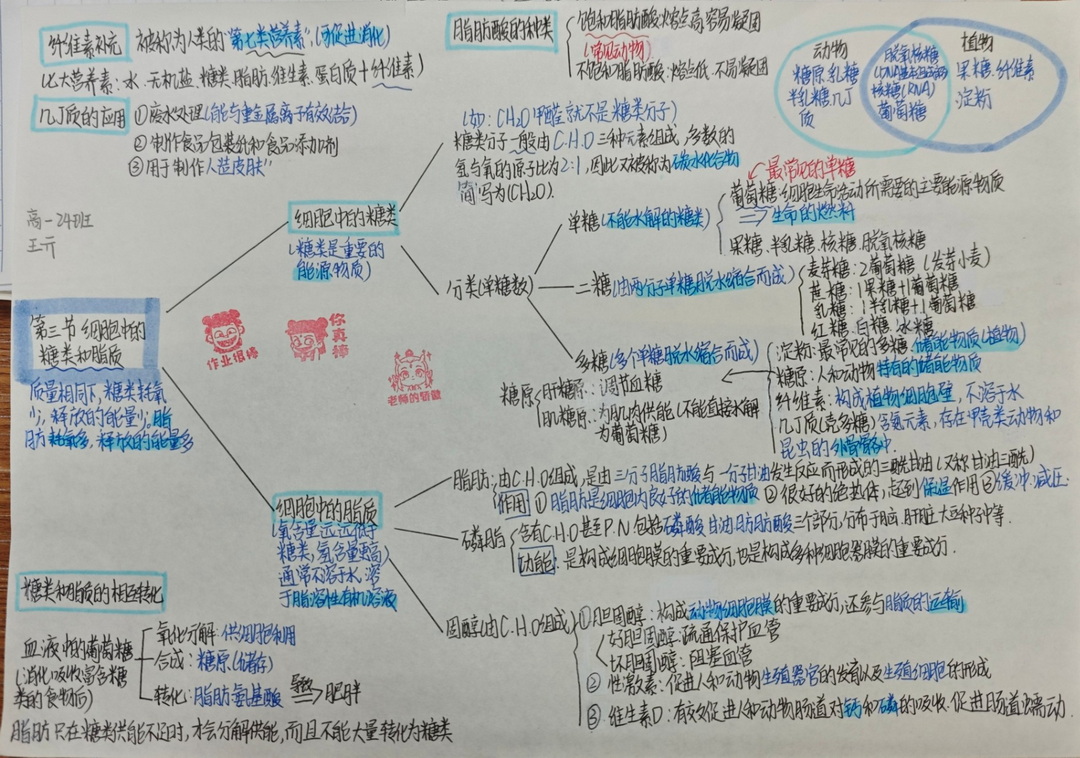 纤维素补充 被称为人类的"第七类营养素",(可促进消化)
(七大营养素:水.无机盐.糖类.脂肪.维生素.蛋白质+纤维素)
几丁质的应用 ①废水处理(能与重金属离子有效结合)
②制作食品包装纸和食品添加剂
③用于制作人造皮肤"
脂肪酸的种类
饱和脂肪酸:熔点高.容易凝固
(常见动物)
不饱和脂肪酸:熔点低.不易凝固
动物
糖原.乳糖
半乳糖几丁
质
脱氧核糖
核糖(RNA)
葡萄糖
植物
果糖.纤维素
淀粉
高一24班
王亓
第三节细胞中的
糖类和脂质
质量相同下,糖类耗氧
少,释放的能量少,脂
肪耗氧多,释放的能量多
细胞中的糖类
(糖类是重要的
能源物质)
(如:CH₂O甲醛就不是糖类分子)
糖类分子一般由C.H.O三种元素组成,多数的
氢与氧的原子比为2:1,因此又被称为碳水化合物
简写为(CH₂O).
分类(单糖数)
单糖(不能水解的糖类)
最常见的单糖
葡萄糖:细胞生命活动所需要的主要能源物质
⇒生命的燃料
果糖.半乳糖.核糖.脱氧核糖
二糖(由两分子单糖脱水缩合而成)
麦芽糖:2葡萄糖(发芽小麦)
蔗糖:1果糖+1葡萄糖
乳糖:1半乳糖+1葡萄糖
红糖.白糖.冰糖
多糖(多个单糖脱水缩合而成)
淀粉:最常见的多糖.储能物质(植物)
糖原:人和动物特有的储能物质
纤维素:构成植物细胞壁,不溶于水
几丁质(壳多糖)含氮元素,存在甲壳类动物和
昆虫的外骨骼中.
糖原
肝糖原:调节血糖
肌糖原:为肌肉供能(不能直接水解
为葡萄糖)
作业很棒
你真棒
老师的骄傲
细胞中的脂质
(氧含量远远低于
糖类,氢含量更高)
通常不溶于水,溶
于脂溶性有机溶液
脂肪:由C.H.O组成,是由三分子脂肪酸与一分子甘油发生反应而形成的三酰甘油(又称甘油三酯)
作用 ①脂肪是细胞内良好的储能物质 ②很好的绝热体,起到保温作用③缓冲.减压.
磷脂
含有C.H.O甚至P.N.包括磷酸.甘油.脂肪酸三个部分,分布于脑.肝脏.大豆种子中等.
功能:是构成细胞膜的重要成分,也是构成多种细胞器膜的重要成分.
固醇(由C.H.O组成)
①胆固醇:构成动物细胞膜的重要成分,还参与脂质的运输
好胆固醇:疏通保护血管
坏胆固醇:阻塞血管
②性激素:促进人和动物生殖器官的发育以及生殖细胞的形成
③维生素D:有效促进人和动物肠道对钙和磷的吸收.促进肠道蠕动.
糖类和脂质的相互转化
血液中的葡萄糖
(消化吸收富含糖
类的食物后)
氧化分解:供细胞利用
合成:糖原(储存)
转化:脂肪.氨基酸→肥胖
脂肪只在糖类供能不足时,才会分解供能,而且不能大量转化为糖类